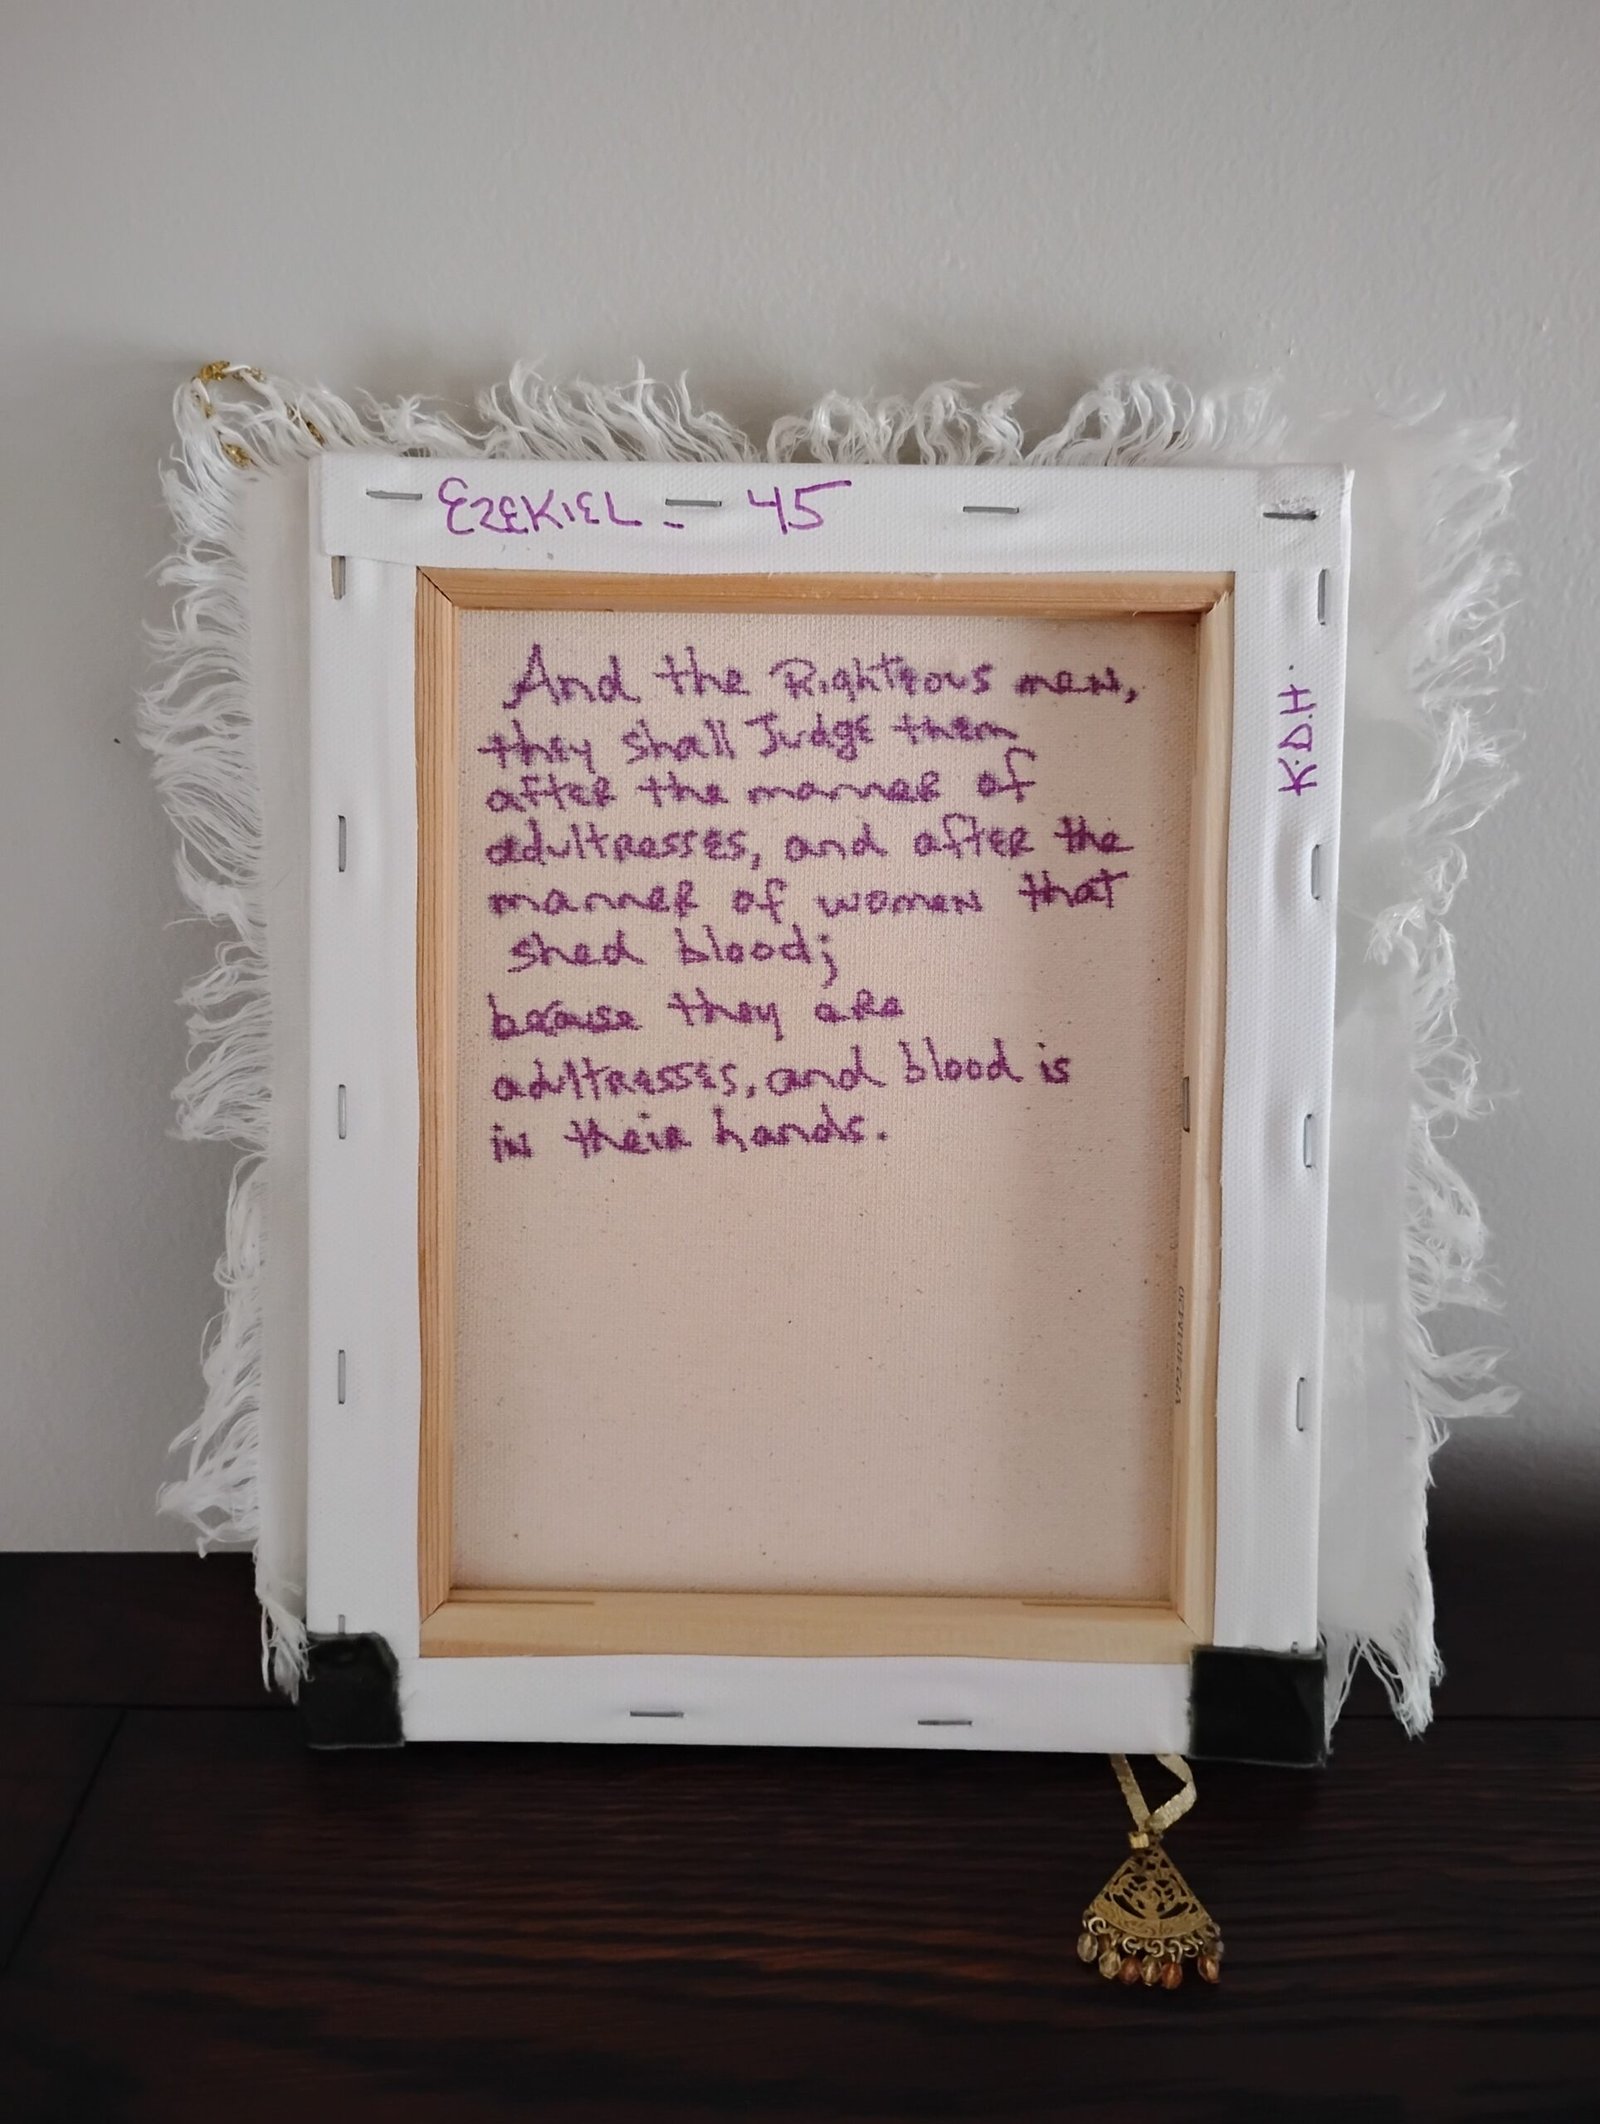 EZEKIEL - 45
And the Righteous men,
they shall Judge them
after the manner of
adultresses, and after the
manner of women that
shed blood;
because they are
adultresses, and blood is
in their hands.
K.D.H.